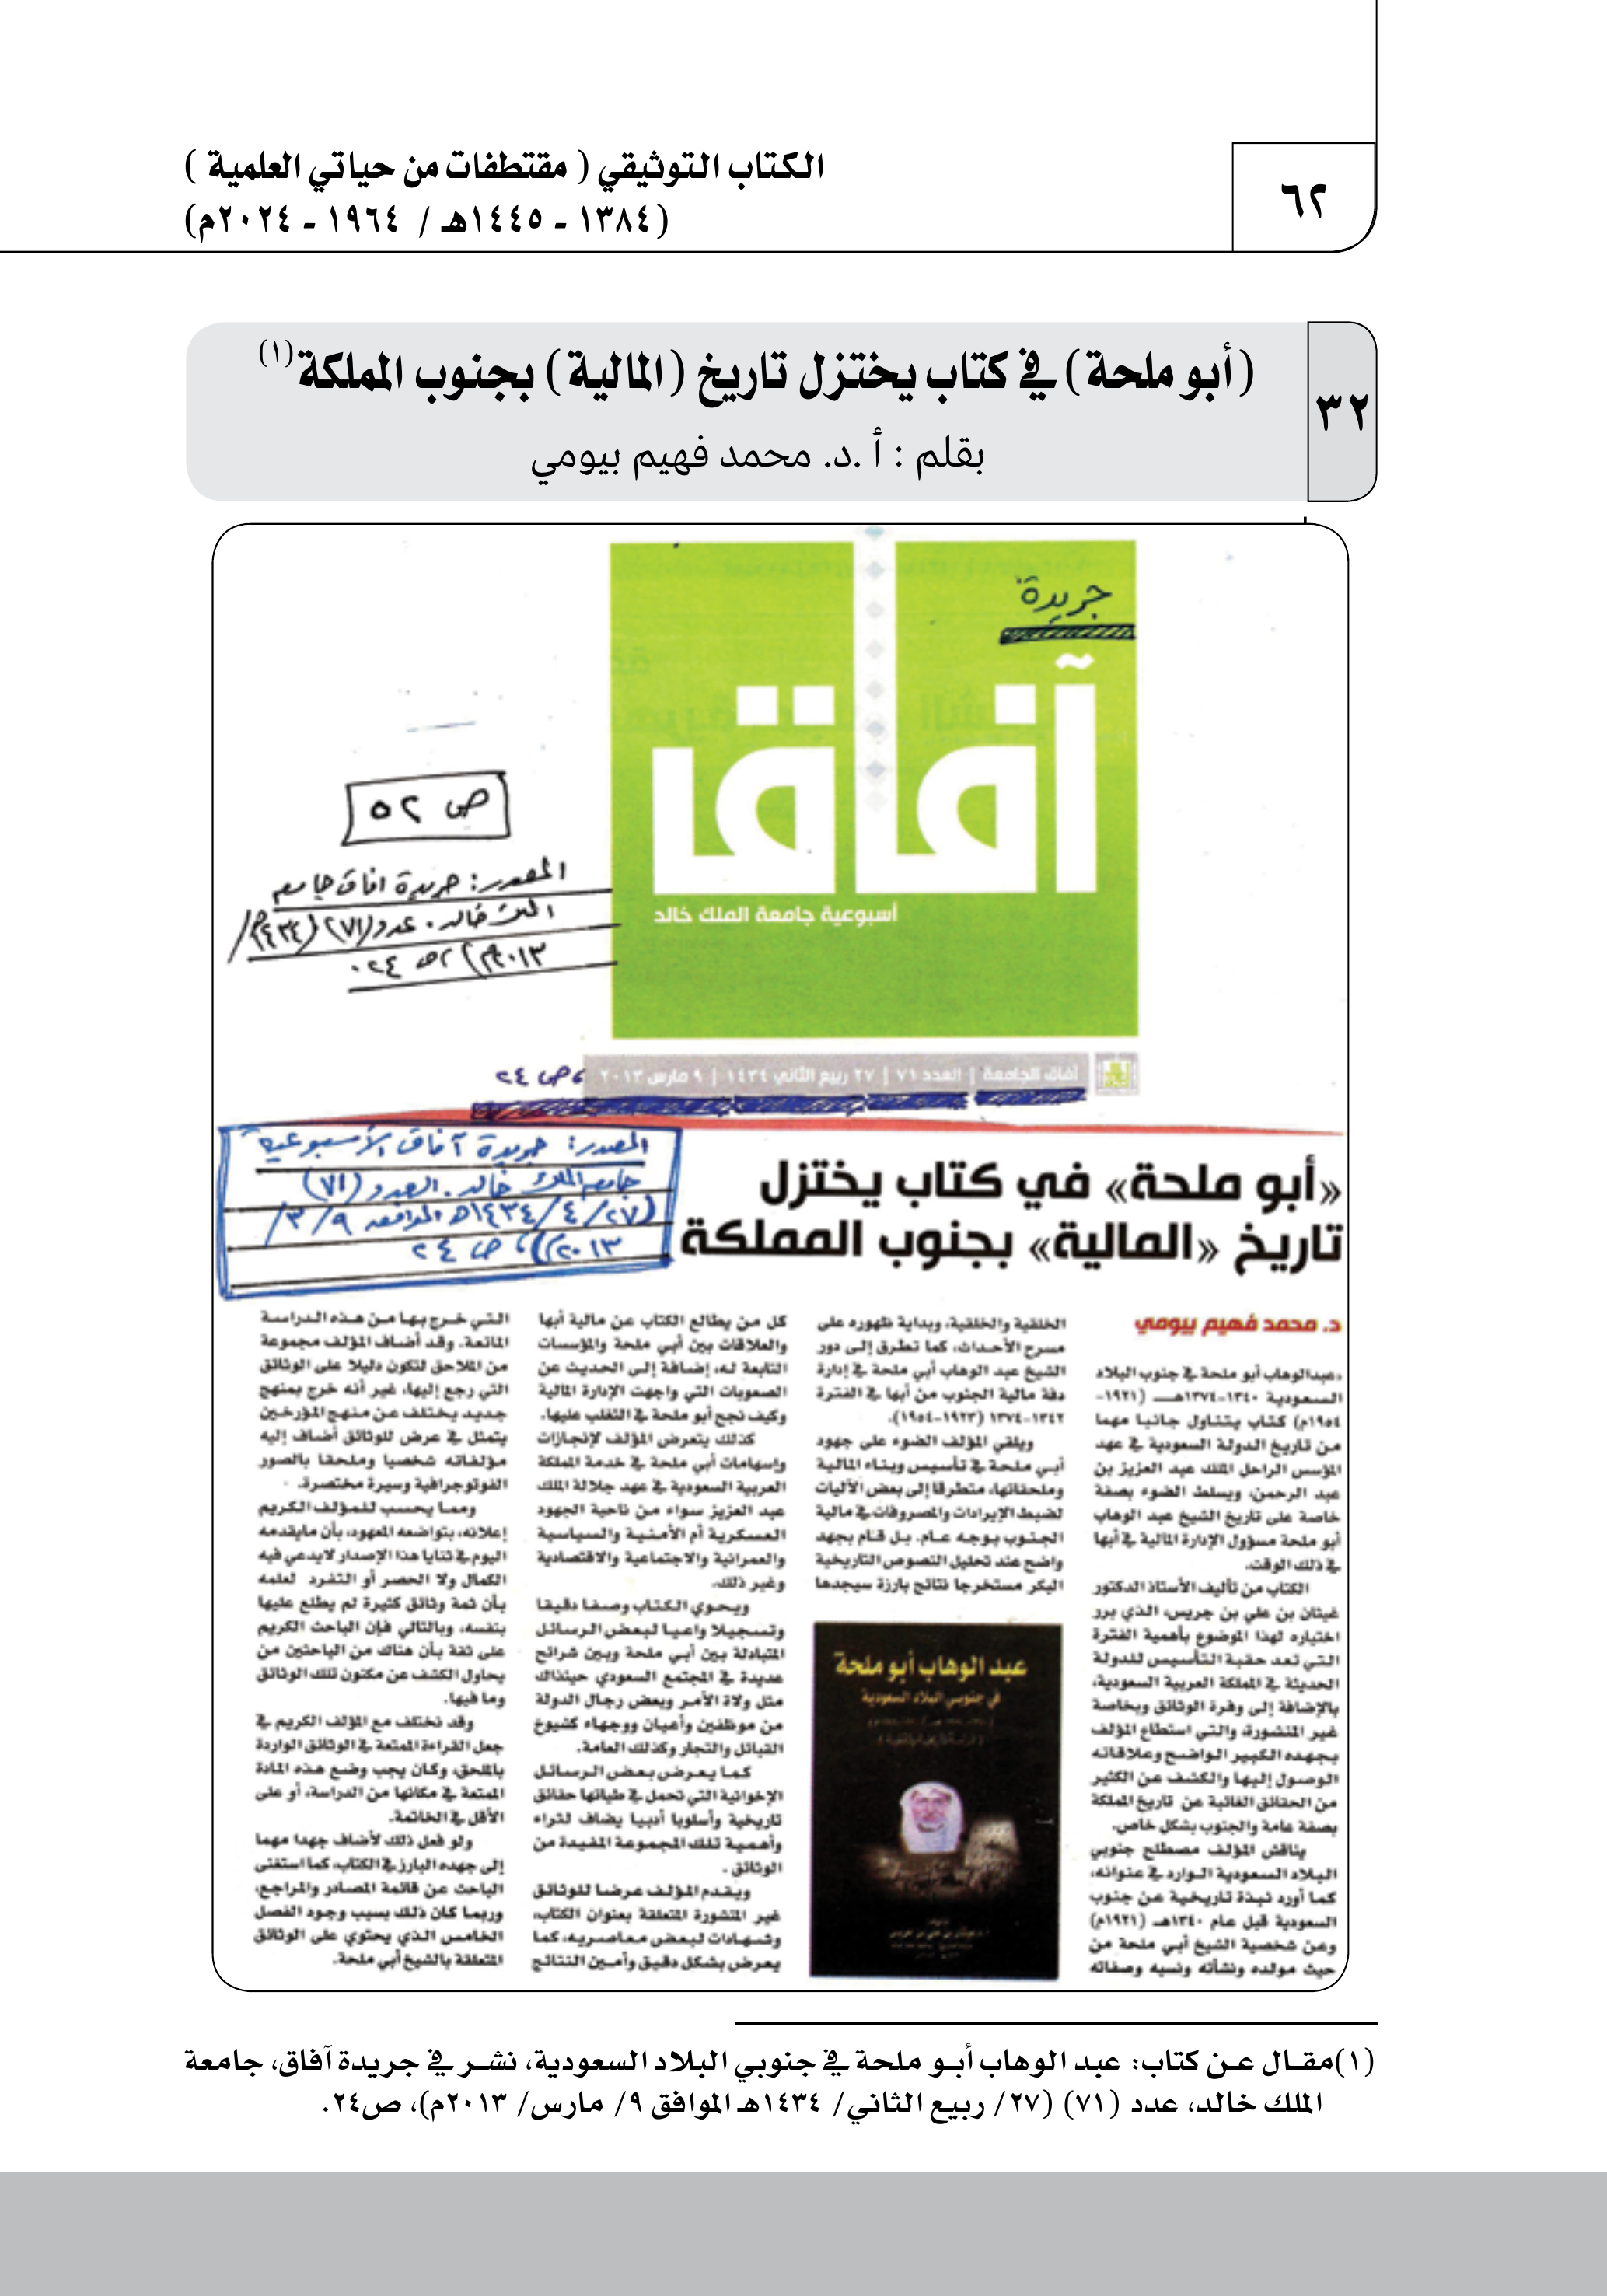 ٦٢
الكتاب التوثيقي ( مقتطفات من حياتي العلمية )
(١٣٨٤ - ١٤٤٥هـ / ١٩٦٤ - ٢٠٢٤م)
٣٢
(أبو ملحة) في كتاب يختزل تاريخ (المالية) بجنوب المملكة(١)
بقلم : أ .د. محمد فهيم بيومي
جريدة
آفاق
أسبوعية جامعة الملك خالد
ص ٥٢
المصدر: جريدة افاق جامعه
الملك خالد. عدد (٧١) (١٤٣٤هـ/
٢٠١٣م) ص ٢٤.
آفاق الجامعة | العدد ٧١ | ٢٧ ربيع الثاني ١٤٣٤ | ٩ مارس ٢٠١٣
، ص ٢٤
المصدر: جريدة آفاق الأسبوعية
جامعة الملك خالد. العدد (٧١)
(٢٧/ ٤/ ١٤٣٤هـ الموافق ٩/ ٣/
٢٠١٣م)، ص ٢٤
«أبو ملحة» في كتاب يختزل
تاريخ «المالية» بجنوب المملكة
د. محمد فهيم بيومي
«عبدالوهاب أبو ملحة في جنوب البلاد
السعودية ١٣٤٠-١٣٧٤هـ (١٩٢١-
١٩٥٤م) كتاب يتناول جانبا مهما
من تاريخ الدولة السعودية في عهد
المؤسس الراحل الملك عبد العزيز بن
عبد الرحمن، ويسلط الضوء بصفة
خاصة على تاريخ الشيخ عبد الوهاب
أبو ملحة مسؤول الإدارة المالية في أبها
في ذلك الوقت.
الكتاب من تأليف الأستاذ الدكتور
غيثان بن علي بن جريس، الذي برر
اختياره لهذا الموضوع بأهمية الفترة
التي تعد حقبة التأسيس للدولة
الحديثة في المملكة العربية السعودية،
بالإضافة إلى وفرة الوثائق وبخاصة
غير المنشورة، والتي استطاع المؤلف
بجهده الكبير الواضح وعلاقاته
الوصول إليها والكشف عن الكثير
من الحقائق الغائبة عن تاريخ المملكة
بصفة عامة والجنوب بشكل خاص.
يناقش المؤلف مصطلح جنوبي
البلاد السعودية الوارد في عنوانه،
كما أورد نبذة تاريخية عن جنوب
السعودية قبل عام ١٣٤٠هـ (١٩٢١م)
وعن شخصية الشيخ أبي ملحة من
حيث مولده ونشأته ونسبه وصفاته
الخلقية والخلقية، وبداية ظهوره على
مسرح الأحداث، كما تطرق إلى دور
الشيخ عبد الوهاب أبي ملحة في إدارة
دفة مالية الجنوب من أبها في الفترة
١٣٤٢-١٣٧٤ (١٩٢٣-١٩٥٤).
ويلقي المؤلف الضوء على جهود
أبي ملحة في تأسيس وبناء المالية
وملحقاتها، متطرقا إلى بعض الآليات
لضبط الإيرادات والمصروفات في مالية
الجنوب بوجه عام. بل قام بجهد
واضح عند تحليل النصوص التاريخية
البكر مستخرجا نتائج بارزة سيجدها
عبد الوهاب أبو ملحة
في جنوبي البلاد السعودية
كل من يطالع الكتاب عن مالية أبها
والعلاقات بين أبي ملحة والمؤسسات
التابعة له، إضافة إلى الحديث عن
الصعوبات التي واجهت الإدارة المالية
وكيف نجح أبو ملحة في التغلب عليها.
كذلك يتعرض المؤلف لإنجازات
وإسهامات أبي ملحة في خدمة المملكة
العربية السعودية في عهد جلالة الملك
عبد العزيز سواء من ناحية الجهود
العسكرية أم الأمنية والسياسية
والعمرانية والاجتماعية والاقتصادية
وغير ذلك.
ويحوي الكتاب وصفا دقيقا
وتسجيلا واعيا لبعض الرسائل
المتبادلة بين أبي ملحة وبين شرائح
عديدة في المجتمع السعودي حينذاك
مثل ولاة الأمر وبعض رجال الدولة
من موظفين وأعيان ووجهاء كشيوخ
القبائل والتجار وكذلك العامة.
كما يعرض بعض الرسائل
الإخوانية التي تحمل في طياتها حقائق
تاريخية وأسلوبا أدبيا يضاف لثراء
وأهمية تلك المجموعة المفيدة من
الوثائق.
ويقدم المؤلف عرضا للوثائق
غير المنشورة المتعلقة بعنوان الكتاب،
وشهادات لبعض معاصريه، كما
يعرض بشكل دقيق وأمين النتائج
التي خرج بها من هذه الدراسة
الماتعة. وقد أضاف المؤلف مجموعة
من الملاحق لتكون دليلا على الوثائق
التي رجع إليها، غير أنه خرج بمنهج
جديد يختلف عن منهج المؤرخين
يتمثل في عرض للوثائق أضاف إليه
مؤلفاته شخصيا وملحقا بالصور
الفوتوجرافية وسيرة مختصرة.
ومما يحسب للمؤلف الكريم
إعلانه، بتواضعه المعهود، بأن مايقدمه
اليوم في ثنايا هذا الإصدار لايدعي فيه
الكمال ولا الحصر أو التفرد لعلمه
بأن ثمة وثائق كثيرة لم يطلع عليها
بنفسه، وبالتالي فإن الباحث الكريم
على ثقة بأن هناك من الباحثين من
يحاول الكشف عن مكنون تلك الوثائق
وما فيها.
وقد نختلف مع المؤلف الكريم في
جعل القراءة الممتعة في الوثائق الواردة
بالملحق، وكان يجب وضع هذه المادة
الممتعة في مكانها من الدراسة، أو على
الأقل في الخاتمة.
ولو فعل ذلك لأضاف جهدا مهما
إلى جهده البارز في الكتاب، كما استغنى
الباحث عن قائمة المصادر والمراجع،
وربما كان ذلك بسبب وجود الفصل
الخامس الذي يحتوي على الوثائق
المتعلقة بالشيخ أبي ملحة.
(١)مقال عن كتاب: عبد الوهاب أبو ملحة في جنوبي البلاد السعودية، نشر في جريدة آفاق، جامعة
الملك خالد، عدد (٧١) (٢٧/ ربيع الثاني/ ١٤٣٤هـ الموافق ٩/ مارس/ ٢٠١٣م)، ص٢٤.